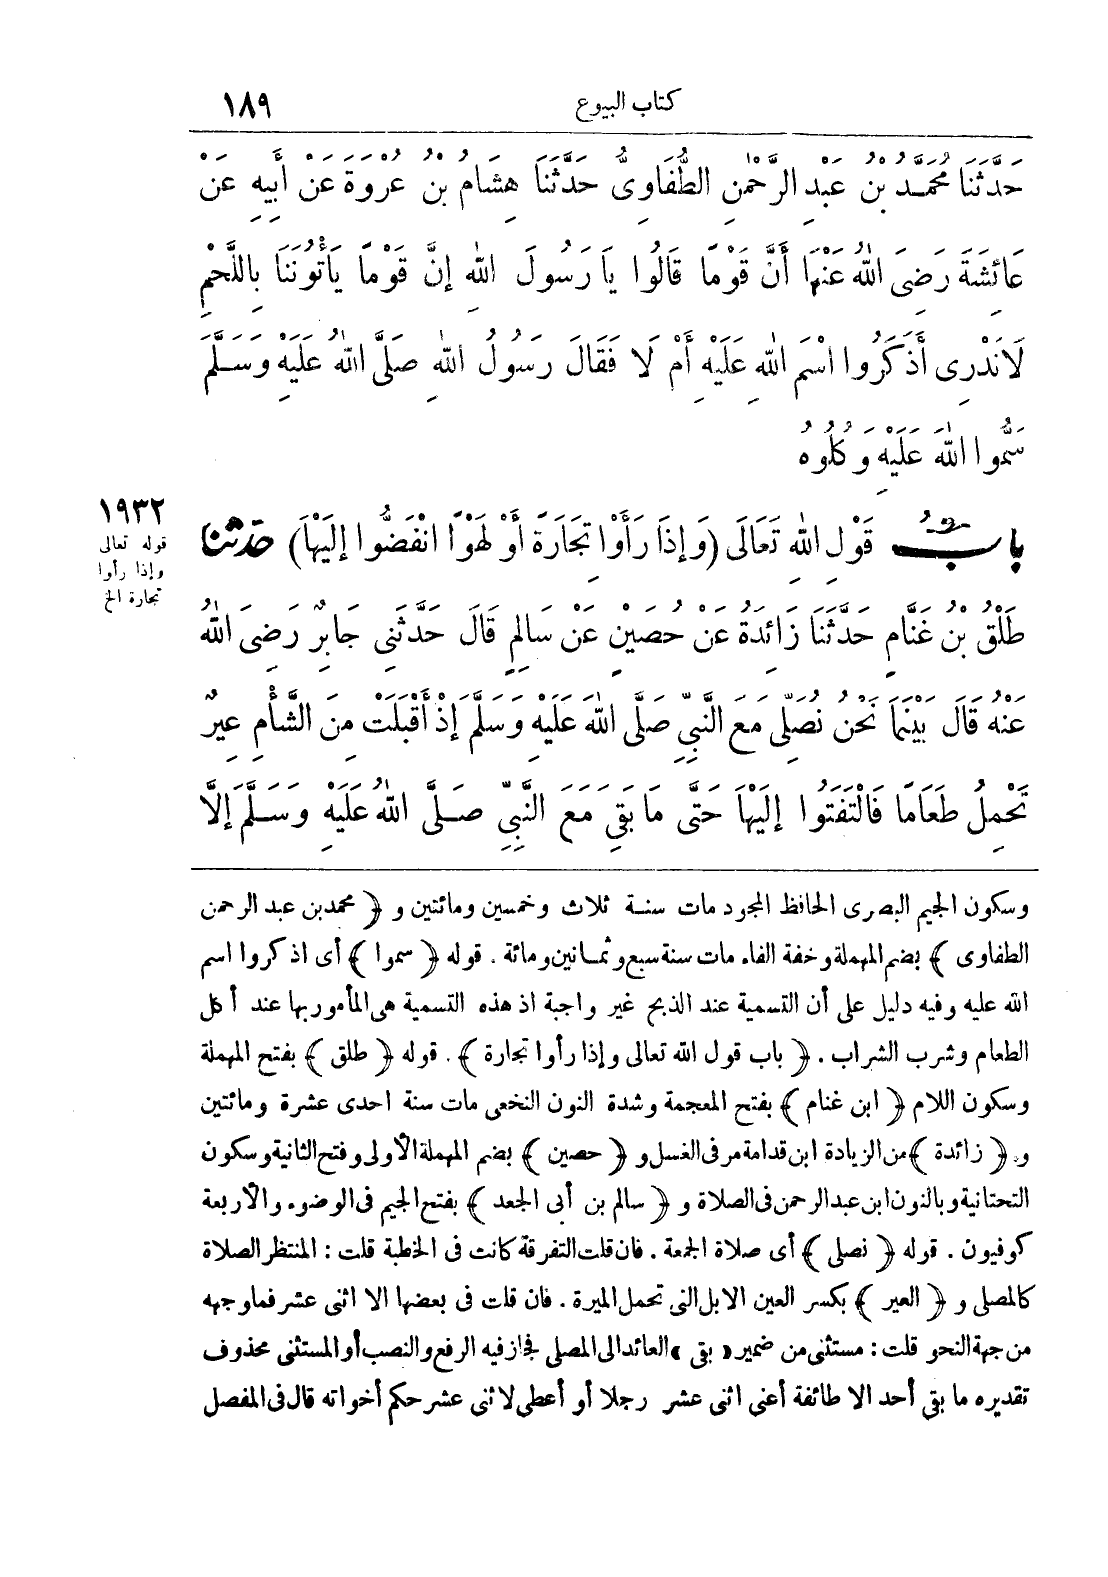 كتاب البيوع ١٨٩
حَدَّثَنَا مُحَمَّدُ بْنُ عَبْدِ الرَّحْمٰنِ الطُّفَاوِىُّ حَدَّثَنَا هِشَامُ بْنُ عُرْوَةَ عَنْ أَبِيهِ عَنْ
عَائِشَةَ رَضِىَ اللهُ عَنْهَا أَنَّ قَوْمًا قَالُوا يَا رَسُولَ اللهِ إِنَّ قَوْمًا يَأْتُونَنَا بِاللَّحْمِ
لَانَدْرِى أَذَكَرُوا اسْمَ اللهِ عَلَيْهِ أَمْ لَا فَقَالَ رَسُولُ اللهِ صَلَّى اللهُ عَلَيْهِ وَسَلَّمَ
سَمُّوا اللهَ عَلَيْهِ وَكُلُوهُ
بابُ قَوْلِ اللهِ تَعَالَى (وَإِذَا رَأَوْا تِجَارَةً أَوْ لَهْوًا انْفَضُّوا إِلَيْهَا) حَدَّثَنَا
١٩٣٢
قوله تعالى
وإذا رأوا
تجارة الخ
طَلْقُ بْنُ غَنَّامٍ حَدَّثَنَا زَائِدَةُ عَنْ حُصَيْنٍ عَنْ سَالِمٍ قَالَ حَدَّثَنِى جَابِرٌ رَضِىَ اللهُ
عَنْهُ قَالَ بَيْنَمَا نَحْنُ نُصَلِّى مَعَ النَّبِىِّ صَلَّى اللهُ عَلَيْهِ وَسَلَّمَ إِذْ أَقْبَلَتْ مِنَ الشَّأْمِ عِيرٌ
تَحْمِلُ طَعَامًا فَالْتَفَتُوا إِلَيْهَا حَتَّى مَا بَقِىَ مَعَ النَّبِىِّ صَلَّى اللهُ عَلَيْهِ وَسَلَّمَ إِلَّا
وسكون الجيم البصرى الحافظ المجود مات سنة ثلاث وخمسين ومائتين و ﴿ محمد بن عبد الرحمن
الطفاوى ﴾ بضم المهملة وخفة الفاء مات سنة سبع وثمانين ومائة . قوله ﴿ سموا ﴾ أى اذكروا اسم
الله عليه وفيه دليل على أن التسمية عند الذبح غير واجبة اذ هذه التسمية هى المأمور بها عند أكل
الطعام وشرب الشراب . ﴿ باب قول الله تعالى وإذا رأوا تجارة ﴾ . قوله ﴿ طلق ﴾ بفتح المهملة
وسكون اللام ﴿ ابن غنام ﴾ بفتح المعجمة وشدة النون النخعى مات سنة احدى عشرة ومائتين
و ﴿ زائدة ﴾ من الزيادة ابن قدامة مر فى الغسل و ﴿ حصين ﴾ بضم المهملة الأولى وفتح الثانية وسكون
التحتانية وبالنون ابن عبد الرحمن فى الصلاة و ﴿ سالم بن أبى الجعد ﴾ بفتح الجيم فى الوضوء والأربعة
كوفيون . قوله ﴿ نصلى ﴾ أى صلاة الجمعة . فان قلت التفرقة كانت فى الخطبة قلت : المنتظر الصلاة
كالمصلى و ﴿ العير ﴾ بكسر العين الابل التى تحمل الميرة . فان قلت فى بعضها الا اثنى عشر فما وجهه
من جهة النحو قلت : مستثنى من ضمير « بقى » العائد الى المصلى فجاز فيه الرفع والنصب أو المستثنى محذوف
تقديره ما بقى أحد الا طائفة أعنى اثنى عشر رجلا أو أعطى لاثنى عشر حكم أخواته قال فى المفصل